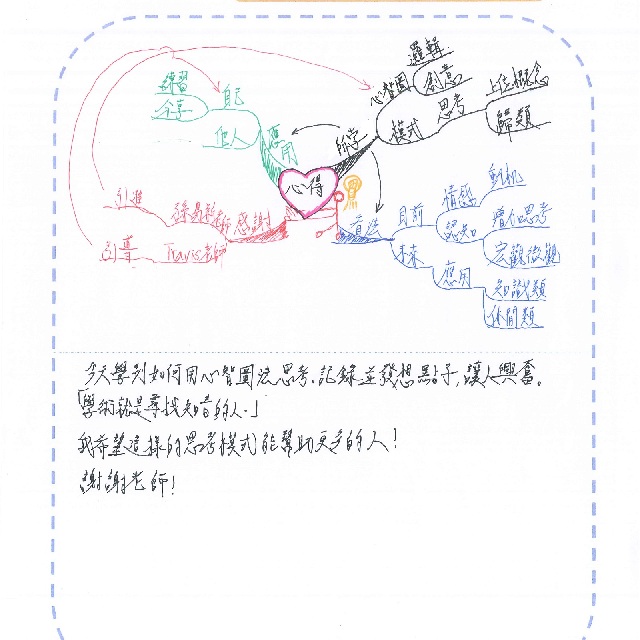 心得
所學
心智圖
邏輯
創意
模式
思考
上位概念
歸類
看法
目前
情感
動機
認知
增加思考
宏觀微觀
未來
應用
知識類
休閒類
感謝
引進
Travis老師
引導
應用
自己
練習
分享
他人
今天學到如何用心智圖法思考、記錄並發想點子,讓人興奮。
「學術就是尋找知音的人.」
我希望這樣的思考模式能幫助更多的人!
謝謝老師!